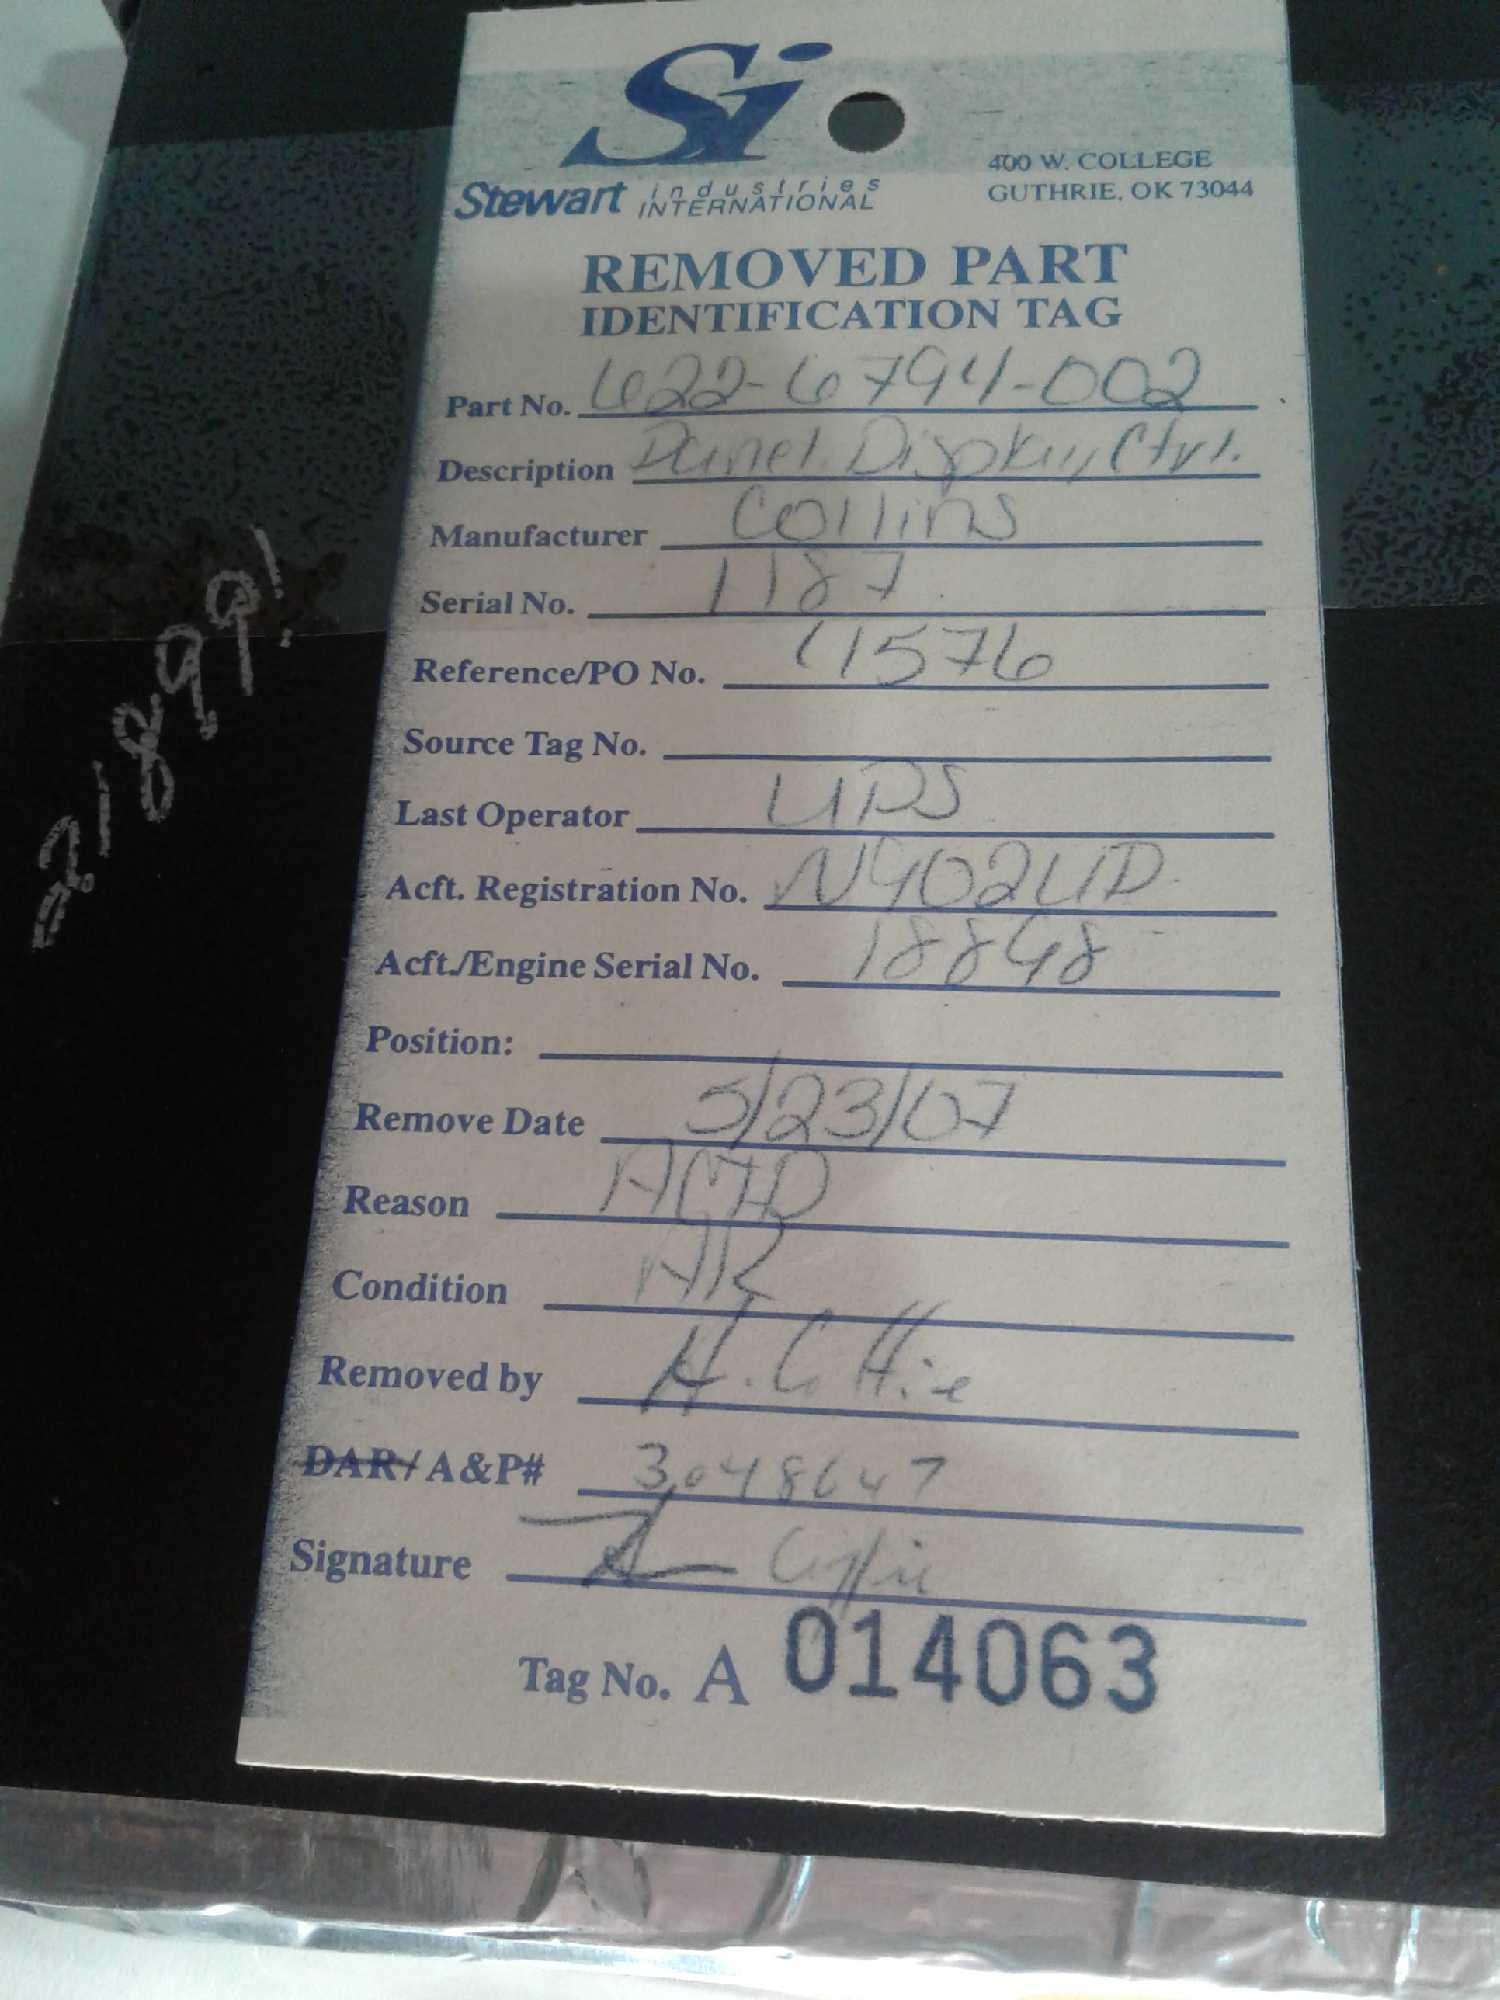 Si
Stewart industries INTERNATIONAL
400 W. COLLEGE
GUTHRIE, OK 73044
REMOVED PART
IDENTIFICATION TAG
Part No. 622-6794-002
Description Panel Display Ctrl.
Manufacturer Collins
Serial No. 1187
Reference/PO No. 41576
Source Tag No.
Last Operator UPS
Acft. Registration No. N902UP
Acft./Engine Serial No. 18898
Position:
Remove Date 5/23/07
Reason
Condition AR
Removed by H.
DAR/ A&P# 3048647
Signature
Tag No. A 014063
221899!